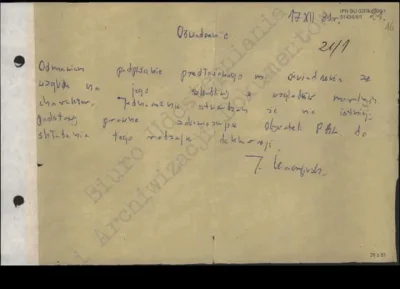 17 XII 81r.
Oświadczenie
21/1
Odmawiam podpisania przedłożonego mi oświadczenia ze
względu na jego szkodliwy z względów moralnych
charakter. Jednocześnie stwierdzam że nie istnieją
podstawy prawne zobowiązujące Obywateli PRL do
składania tego rodzaju deklaracji.
J.
Biuro Udostępniania
i Archiwizacji Dokumentów